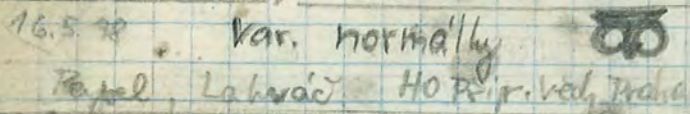 16.5.98 Var. normálky
Papel, Lahváč HO Přípr. věd, Praha